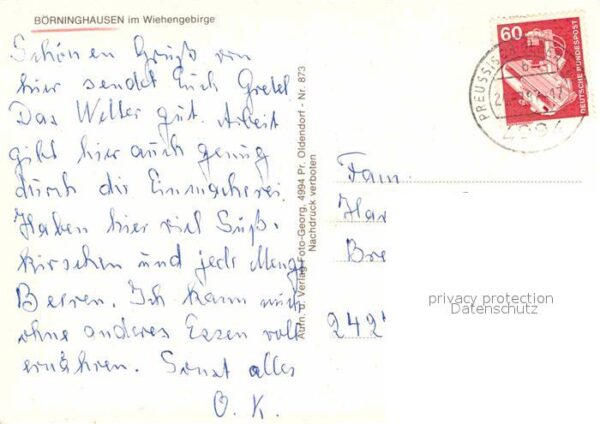 BÖRNINGHAUSEN im Wiehengebirge
Schönen Gruß von
hier sendet Euch Gretel
Das Wetter gut. Arbeit
gibt hier auch genug
durch die Einmacherei.
Haben hier viel Süß-
kirschen und jede Menge
Beeren. Ich kann mich
ohne anderes Essen voll
ernähren. Sonst alles
O. K.
Aufn. u. Verlag Foto-Georg, 4994 Pr. Oldendorf - Nr. 873
Nachdruck verboten
60
DEUTSCHE BUNDESPOST
PREUSSISCH
4994
Fam.
Har
Bre
242
privacy protection
Datenschutz